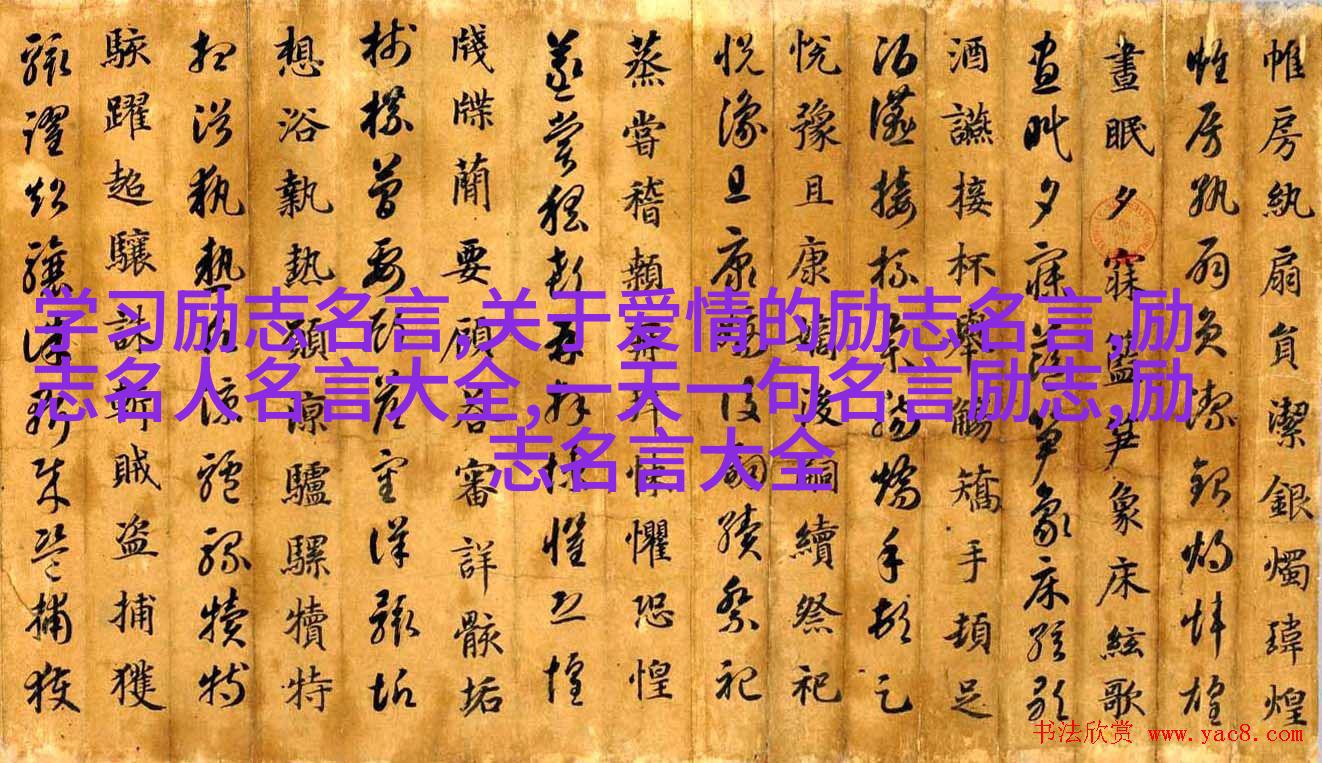 帷房紈扇員潔銀燭瑋煌
帷房紈扇員潔銀燭煒煌
晝眠夕寐籃笋象床絃歌
晝眠夕寐藍笋象床絃歌
酒讌接杯舉觴矯手頓足
酒讌接杯舉觴矯手頓足
悅豫且康嫡後嗣續祭祀
悅豫且康嫡後嗣續祭祀
蒸嘗稽顙再拜悚懼恐惶
蒸嘗稽顙再拜悚懼恐惶
牋牒簡要顧答審詳骸垢
牋牒簡要顧答審詳骸垢
想浴執熱願涼驢騾犢特
想浴執熱願涼驢騾犢特
駭躍超驤誅斬賊盜捕獲
駭躍超驤誅斬賊盜捕獲
学习励志名言,关于爱情的励志名言,励
志名人名言大全,一天一句名言励志,励
志名言大全
书法欣赏 www.yac8.com